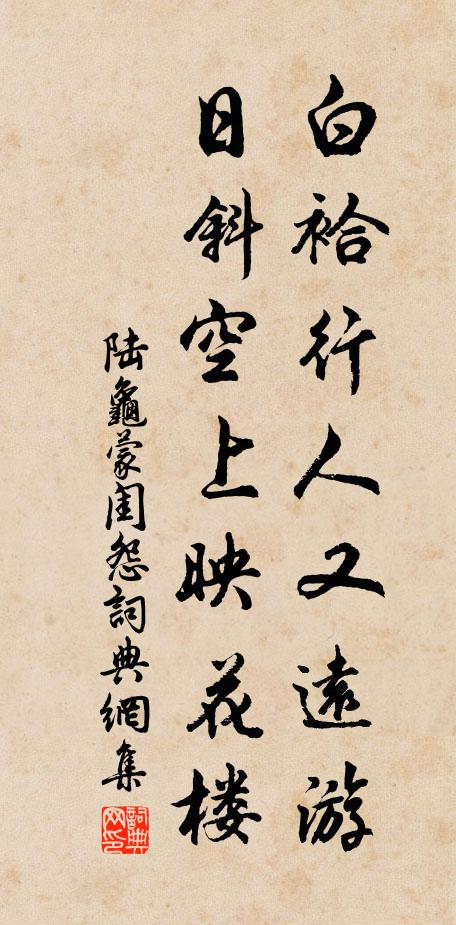 白袷行人又遠游
日斜空上映花楼
陆龜蒙闺怨詞典網集
詞典网印